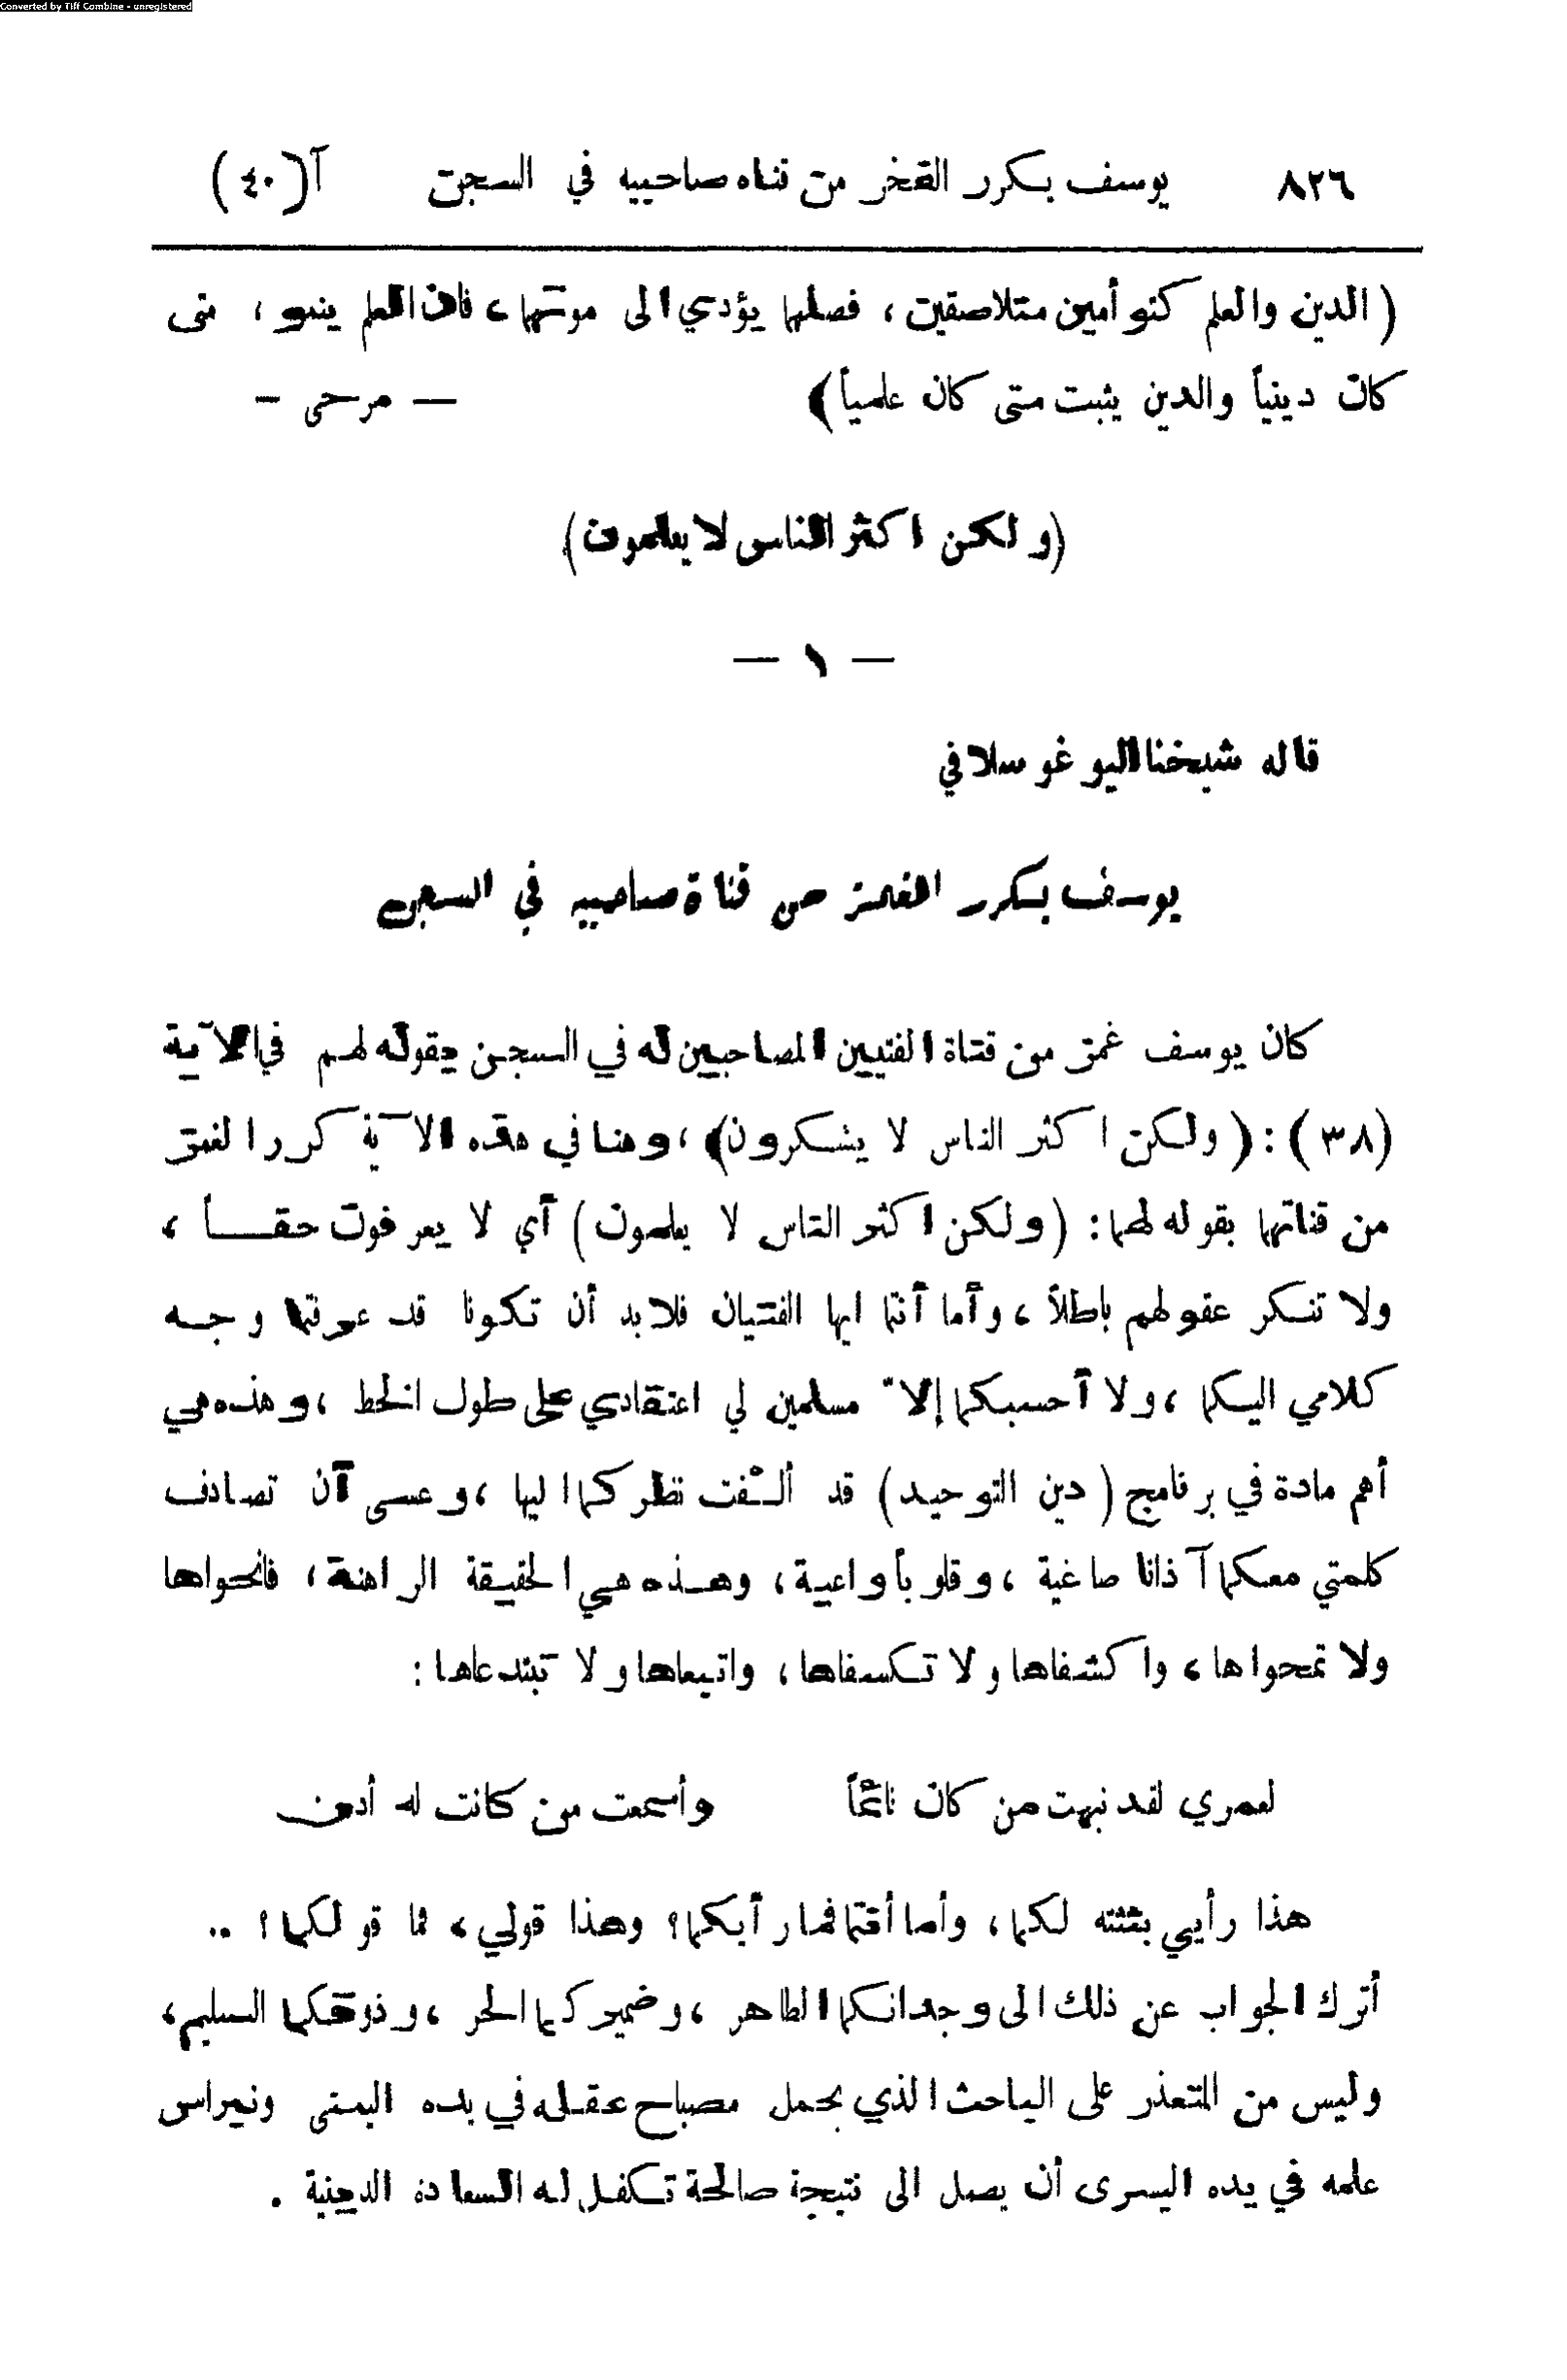 Converted by Tiff Combine - unregistered
٨٢٦ يوسف يكرر الغمز من قناة صاحبيه في السجن آ(٤٠)
(الدين والعلم كتوأمين متلاصقين، فصلهما يؤدي الى موتهما، فان العلم ينمو، متى
كان دينياً والدين يثبت متى كان علمياً) — مرحى -
(ولكن اكثر الناس لا يعلمون)
— ١ —
قاله شيخنا اليوغوسلافي
يوسف يكرر الغمز من قناة صاحبيه في السجن
كان يوسف غمز من قناة الفتيين المصاحبين له في السجن بقوله لهم في الآية
(٣٨): (ولكن اكثر الناس لا يشكرون)، وهنا في هذه الآية كرر الغمز
من قناتهما بقوله لهما: (ولكن اكثر الناس لا يعلمون) أي لا يعرفون حقـــاً،
ولا تنكر عقولهم باطلاً، وأما أنتما ايها الفتيان فلابد أن تكونا قد عرفتما وجـه
كلامي اليكما، ولا أحسبكما إلاّ مسلمين لي اعتقادي على طول الخط، وهذه هي
أهم مادة في برنامج (دين التوحيد) قد ألْفت نظركما اليها، وعسى أن تصادف
كلمتي معكما آذانا صاغية، وقلوباً واعية، وهـذه هي الحقيقة الراهنة، فانحواها
ولا تمحواها، واكشفاها ولا تكسفاها، واتبعاها ولا تبتدعاها:
لعمري لقد نبهت من كان نائماً وأسمعت من كانت له أذنـــ
هذا رأيي بثثته لكما، وأما أنتما فما رأيكما؟ وهذا قولي، فما قولكما؟ ..
أترك الجواب عن ذلك الى وجدانكما الطاهر، وضميركما الحر، وذوقكما السليم،
وليس من المتعذر على الباحث الذي يحمل مصباح عقله في يده اليمنى ونبراس
علمه في يده اليسرى أن يصل الى نتيجة صالحة تكفل له السعادة الدينية.